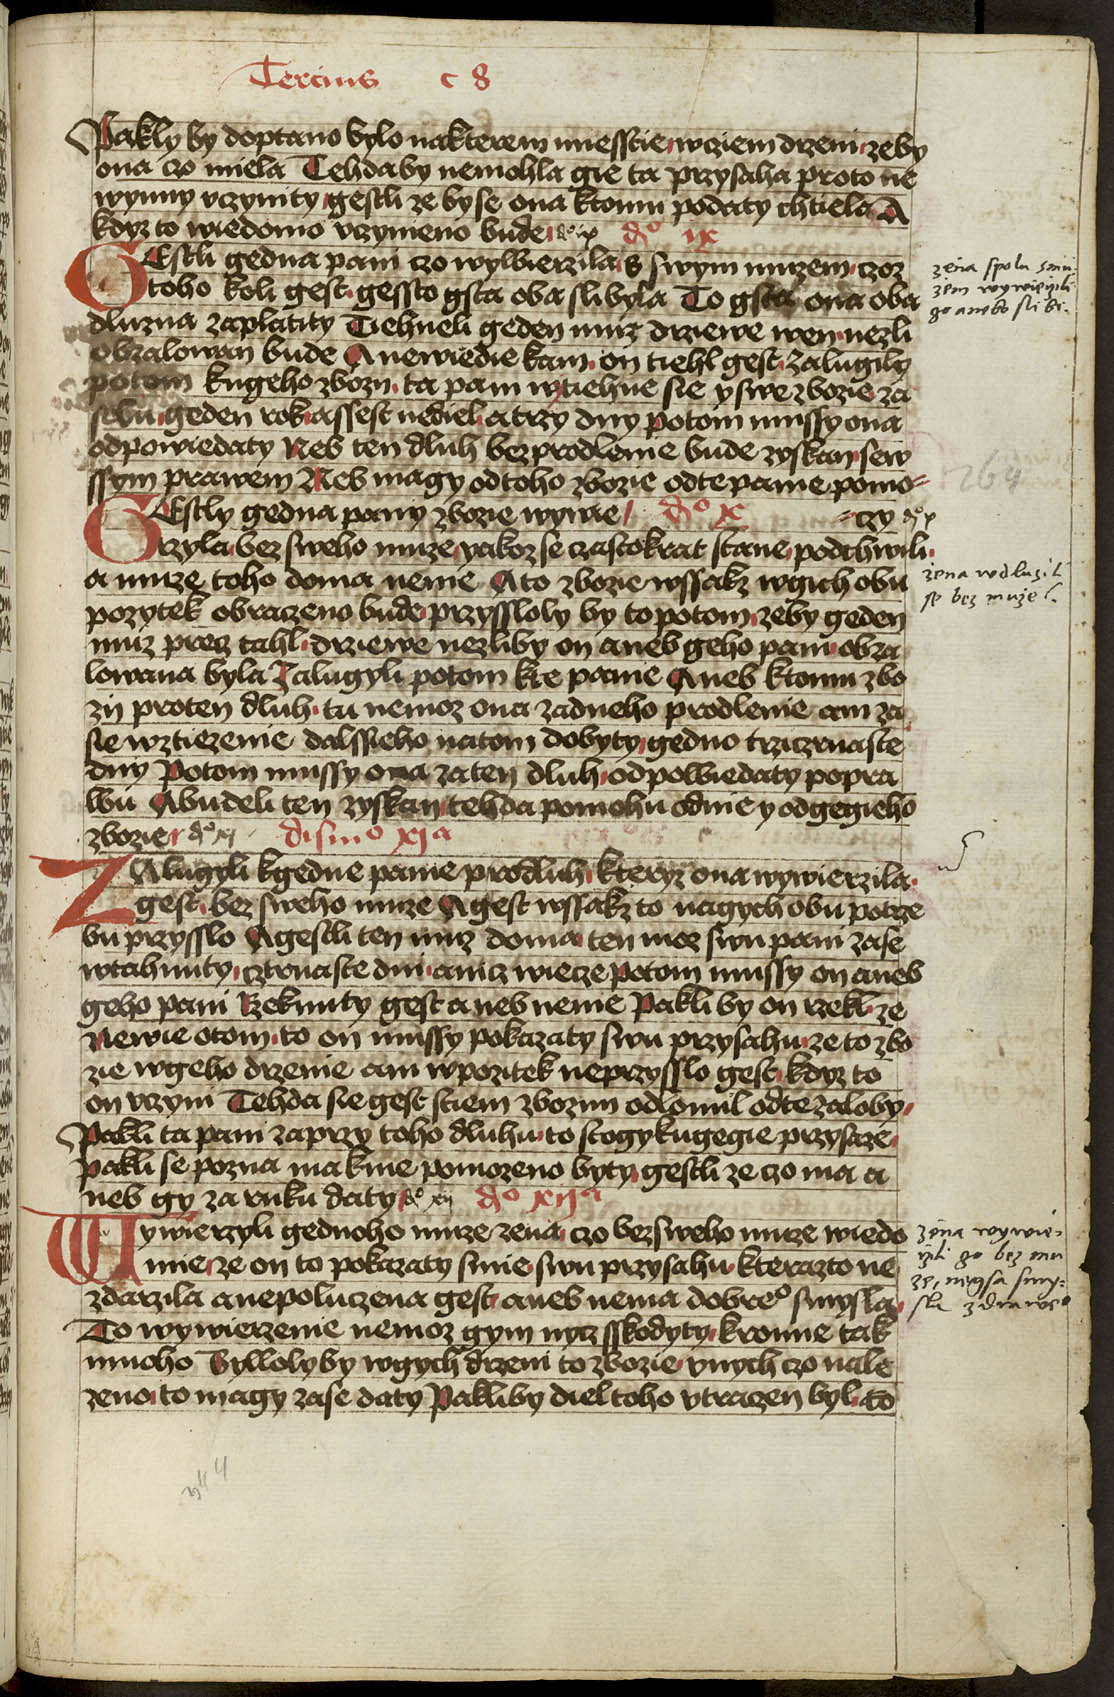 Tercius c 8
Pakly by doptano bylo nakterem miesstie wziem drzeni zeby
ona czo miela Tehdaby nemohla gie ta przysaha proto ne
wynny vczynity gestli ze byse ona ktomu podaty chtiela A
kdyz to wiedomo vczyneno bude dº ix dº ix
GEstli gedna pani czo wywierzila s swym muzem czoz
toho koli gest gessto gsta oba slibyla To gsta ona oba
dluzna zaplatity Tiehneli geden muz drziewe wen nezli
obzalowan bude A newiedie kam on tiehl gest zalugily
potom kngeho zbozy ta pani wtiehne sie y swe zbozie za
sebu geden rok a ssest nediel a trzy dny potom mussy ona
odpowiedaty Neb ten dluh bez prodlenie bude zyskan sew
ssym prawem Neb magy od toho zbozie odte panie pomo
GEstly gedna pany zbozie wywie dº x czy dº x
rzyla bez sweho muze yakoz se czastokrat stane podchwili
a muze toho doma nenie A to zbozie wssakz wgich obu
pozytek obraczeno bude przyssloly by to potom zeby geden
muz precz tahl drziewe nezliby on aneb geho pani obza
lowana byla Zalugyli potom kte panie Aneb ktomu zbo
zy proten dluh tu nemoz ona zadneho prodlenie ani za
sie wztiezenie dalssieho natom dobyty gedno trzicznaste
dny Potom mussy ona za ten dluh odpowiedaty popra
wu Abudeli ten zyskan tehda pomohu odnie y odgegieho
zbozie dº xi dismº xiª
ZAlugyli kgedne panie prodluh kteryz ona wywierzila
gest bez sweho muze A gest wssakz to nagych obu potrze
bu przysslo A gestli ten muz doma ten moz swu pani zase
wtahnuty cztrnaste dni anicz wiecze potom mussy on aneb
geho pani Rzeknuty gest a neb nenie Pakli by on rzekl ze
Newie otom to on mussy pokazaty swu przysahu ze to zbo
zie wgeho drzenie ani wpozitek neprzysslo gest kdyz to
on vczyni Tehda sie gest stiem zbozim odlomil odte zaloby
Pakli ta pani zaprzy toho dluhu to stogy kugegie przysaze
pakli se pozna ma knie pomozeno byty gestli ze czo ma a
neb gy za ruku daty dº xij dº xijª
Wywierzyli gednoho muze zena czo bez sweho muze wiedo
mie ze on to pokazaty smie swu przysahu kterazto ne
zdarzila anepoluczena gest aneb nema dobreº smysla
To wywierzenie nemoz gym nycz sskodyty kromie tak
mnoho Bylloly by wgych drzeni to zbozie vnych czo nale
zeno to magy zase daty Pakliby diel toho vtraczen byl to
zena spolu smu
zem wywierzili
go anebo slibi.
264
zena wdluzil
se bez muze
zena wywie
rzili go bez mu
ze, niegsa smy-
sle zdraweº